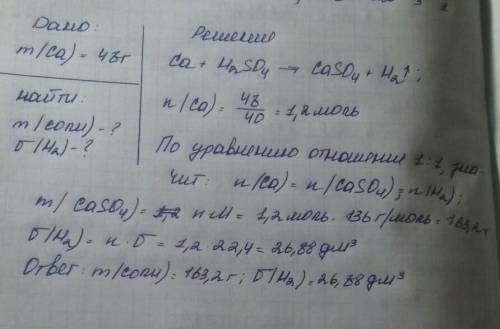 Дано:
m(Ca) = 48г
Найти:
m(соли) - ?
V(H₂) - ?
Решение
Ca + H₂SO₄ → CaSO₄ + H₂↑;
n(Ca) = 48/40 = 1,2 моль
По уравнению отношение 1:1, зна-
чит: n(Ca) = n(CaSO₄) = n(H₂);
m(CaSO₄) = n·M = 1,2 моль · 136 г/моль = 163,2г
V(H₂) = n · V = 1,2 · 22,4 = 26,88 дм³
Ответ: m(соли) = 163,2 г; V(H₂) = 26,88 дм³